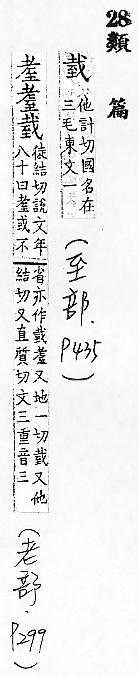 28類篇
臷
他計切國名在
三毛東文一
(至部.P435)
耊耋臷
徒結切說文年
八十曰耊或不
省亦作臷耋又地一切臷又他
結切又直質切文三重音三
(老部.P299)